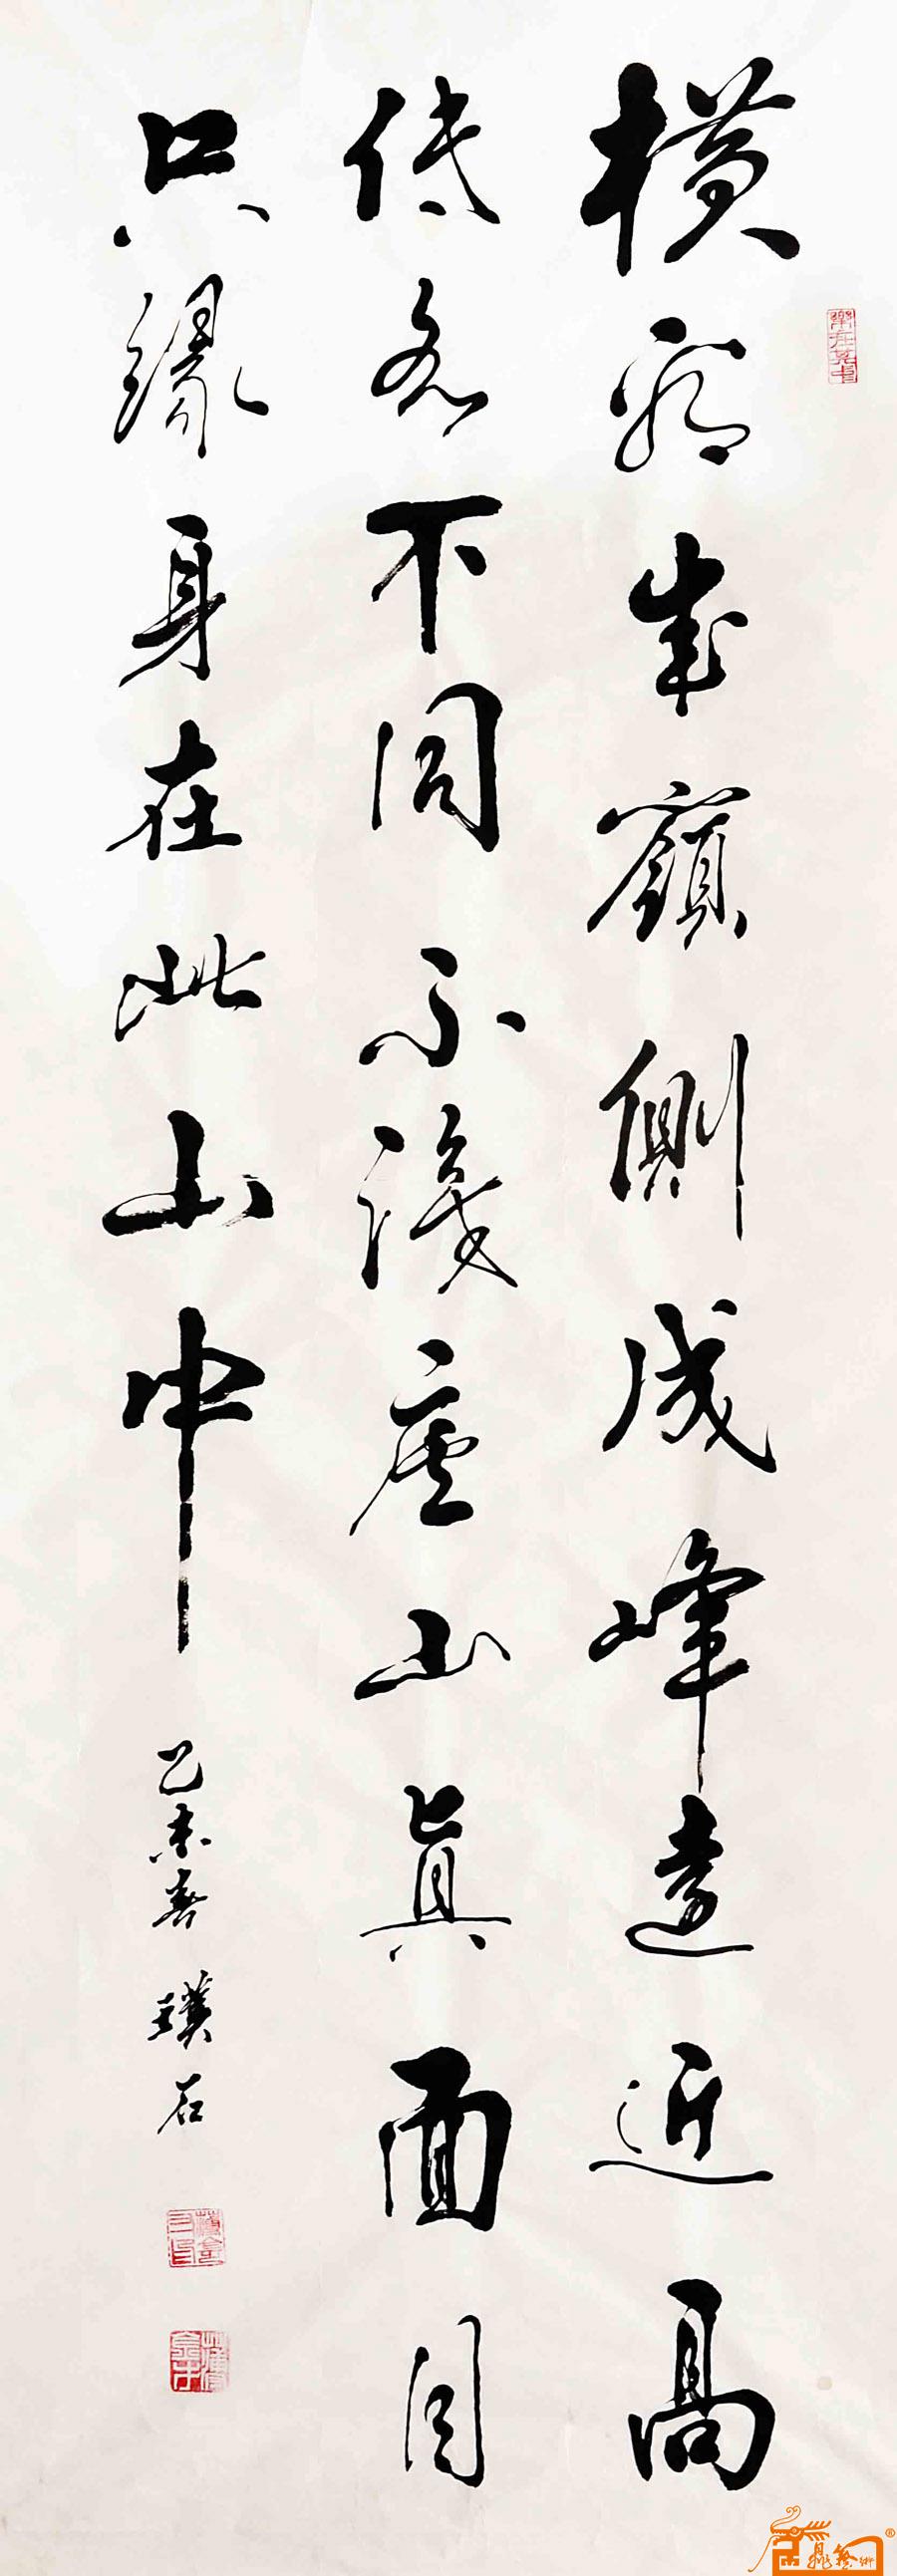 橫看成嶺側成峰遠近高
低各不同不識廬山眞面目
只緣身在此山中
乙未春 璞石
樂在其中